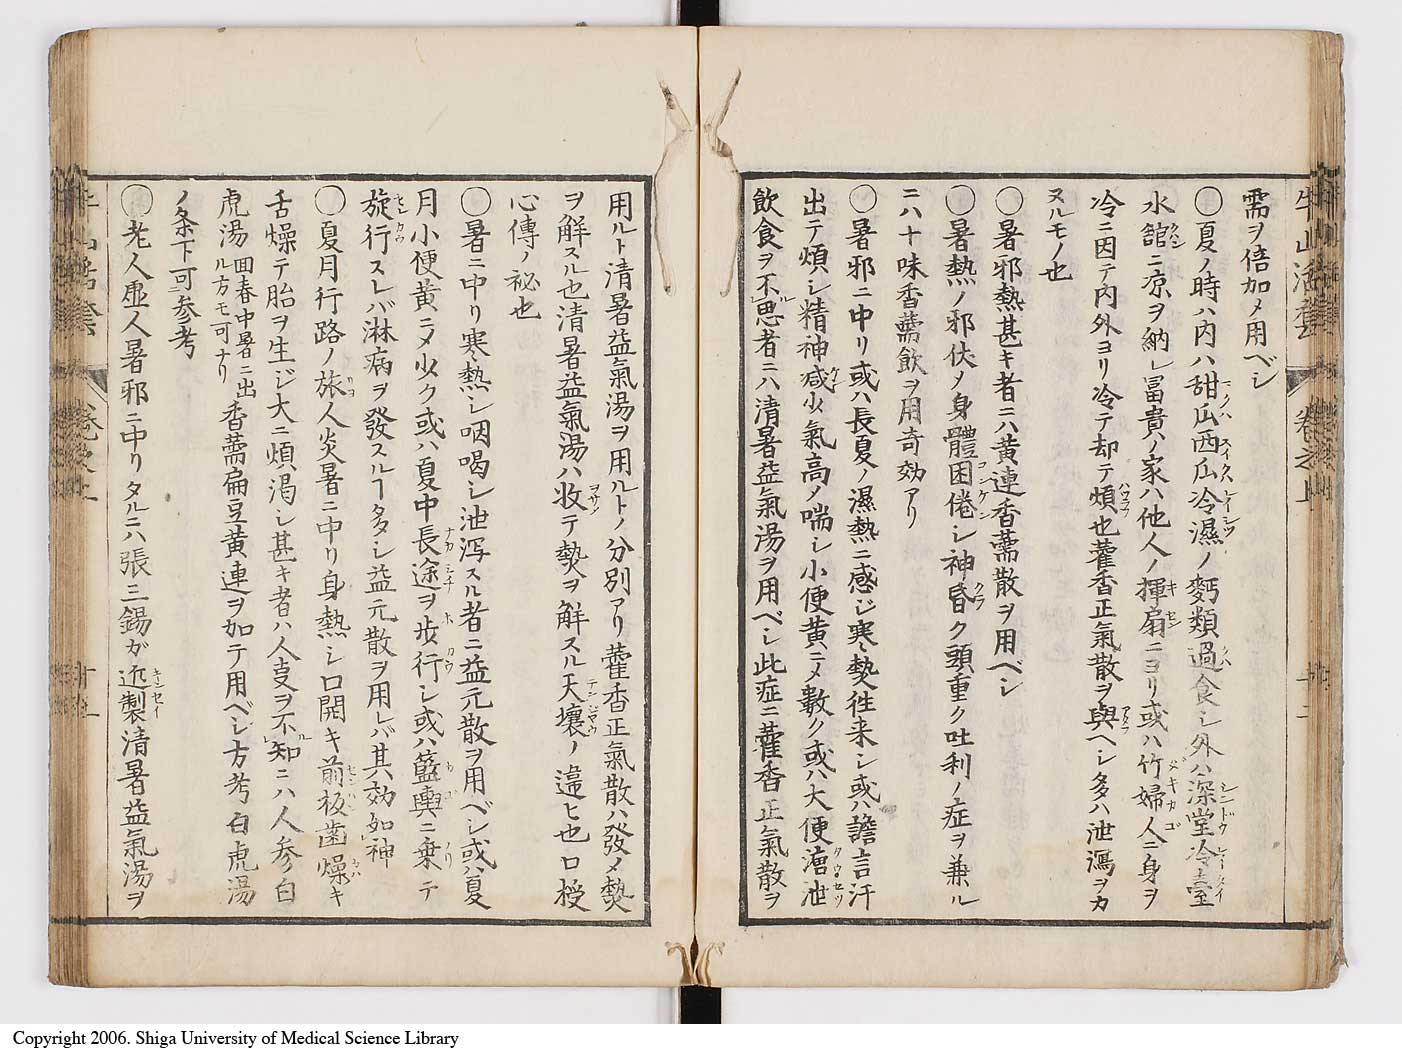 需ヲ倍加メ用ベシ
〇夏ノ時ハ内ハ甜瓜西瓜冷濕ノ麪類過食シ外ハ深堂冷臺
水舘ニ凉ヲ納レ冨貴ノ家ハ他人ノ揮扇ニヨリ或ハ竹婦人ニ身ヲ
冷ニ因テ内外ヨリ冷テ却テ煩也藿香正氣散ヲ與ヘシ多ハ泄瀉ヲカ
ヌルモノ也
〇暑邪熱甚キ者ニハ黄連香薷散ヲ用ベシ
〇暑熱ノ邪伏メ身體困倦シ神昏ク頭重ク吐利ノ症ヲ兼ル
ニハ十味香薷飲ヲ用奇効アリ
〇暑邪ニ中リ或ハ長夏ノ濕熱ニ感ジ寒熱往来シ或ハ譫言汗
出テ煩シ精神减少氣高ノ喘シ小便黄ニメ數ク或ハ大便溏泄
飲食ヲ不思者ニハ清暑益氣湯ヲ用ベシ此症ニ藿香正氣散ヲ
用ルト清暑益氣湯ヲ用ルトノ分別アリ藿香正氣散ハ發メ熱
ヲ解スル也清暑益氣湯ハ收テ熱ヲ解スル天壤ノ違ヒ也口授
心傳ノ祕也
〇暑ニ中リ寒熱シ咽喝シ泄瀉スル者ニ益元散ヲ用ベシ或ハ夏
月小便黄ニメ少ク或ハ夏中長途ヲ歩行シ或ハ籃輿ニ乗テ
旋行スレバ淋病ヲ發スルヿ多シ益元散ヲ用レバ其効如神
〇夏月行路ノ旅人炎暑ニ中リ身熱シ口開キ前板歯燥キ
舌燥テ胎ヲ生ジ大ニ煩渇シ甚キ者ハ人亊ヲ不知ニハ人参白
虎湯回春中暑ニ出ル方モ可ナリ香薷扁豆黄連ヲ加テ用ベシ方考白虎湯
ノ条下可参考
〇老人虚人暑邪ニ中リタルニハ張三錫ガ近製清暑益氣湯ヲ
牛山活套 卷之上 十二
Copyright 2006. Shiga University of Medical Science Library